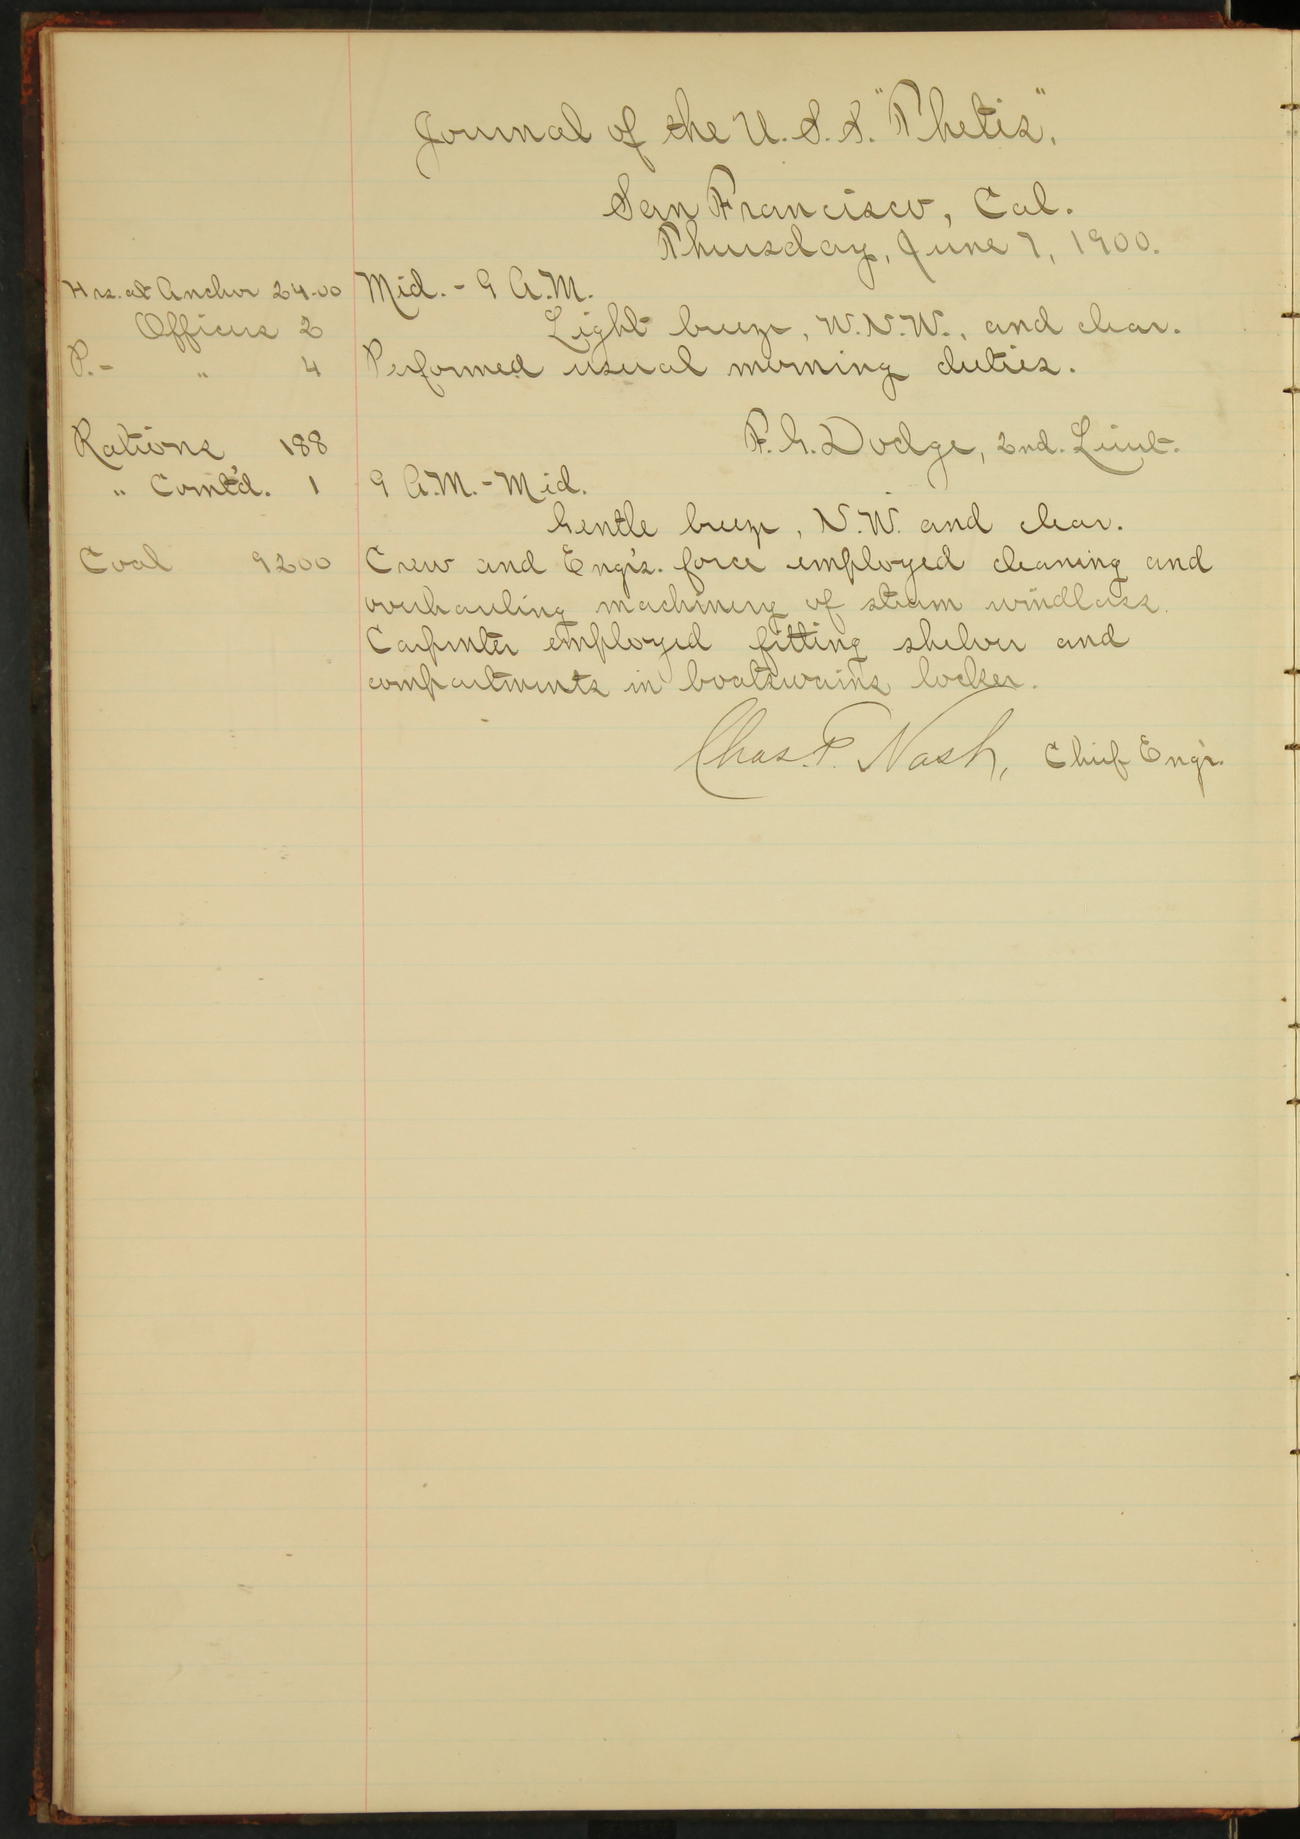 Journal of the U.S.S. "Thetis".
San Francisco, Cal.
Thursday, June 7, 1900.
Hrs. at Anchor 24-00
Officers 2
P.- " 4
Rations 188
" Comt'd. 1
Coal 9200
Mid. - 9 A.M.
Light breeze, W.N.W., and clear.
Performed usual morning duties.
F. G. Dodge, 2nd. Lieut.
9 A.M. - Mid.
Gentle breeze, N.W. and clear.
Crew and Eng'rs. force employed cleaning and
overhauling machinery of steam windlass.
Carpenter employed fitting shelves and
compartments in boatswains locker.
Chas. F. Nash, Chief Eng'r.